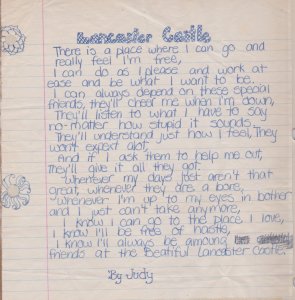 Lancaster Castle
There is a place where I can go and
really feel I'm free,
I can do as I please and work at
ease and be what I want to be.
I can always depend on these special
friends, they'll cheer me when I'm down,
They'll listen to what I have to say
no-matter how stupid it sounds.
They'll understand just how I feel, They
won't expext alot,
And if I ask them to help me out,
They'll give it all they got.
Whenever my days just aren't that
great, whenever they are a bore,
Whenever I'm up to my eyes in bother
and I just can't take anymore,
I know I can go to the place I love,
I know I'll be free of hastle,
I know I'll always be amoung
friends at the Beatiful Lancaster Castle.
By Judy